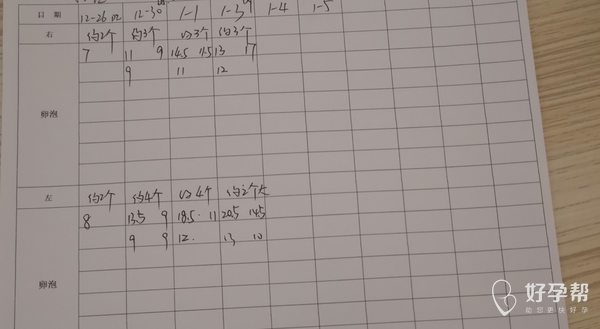 日 期 12-26 12-30 1-1 1-3 1-4 1-5
右 约2个 约3个 约3个 约3个
7 11 9 14.5 11.5 13 17
9 11 12
卵泡
左 约2个 约4个 约4个 约2个大
8 13.5 9 18.5 11 20.5 14.5
9 9 12 13 10
卵泡
好孕帮
助您更快好孕